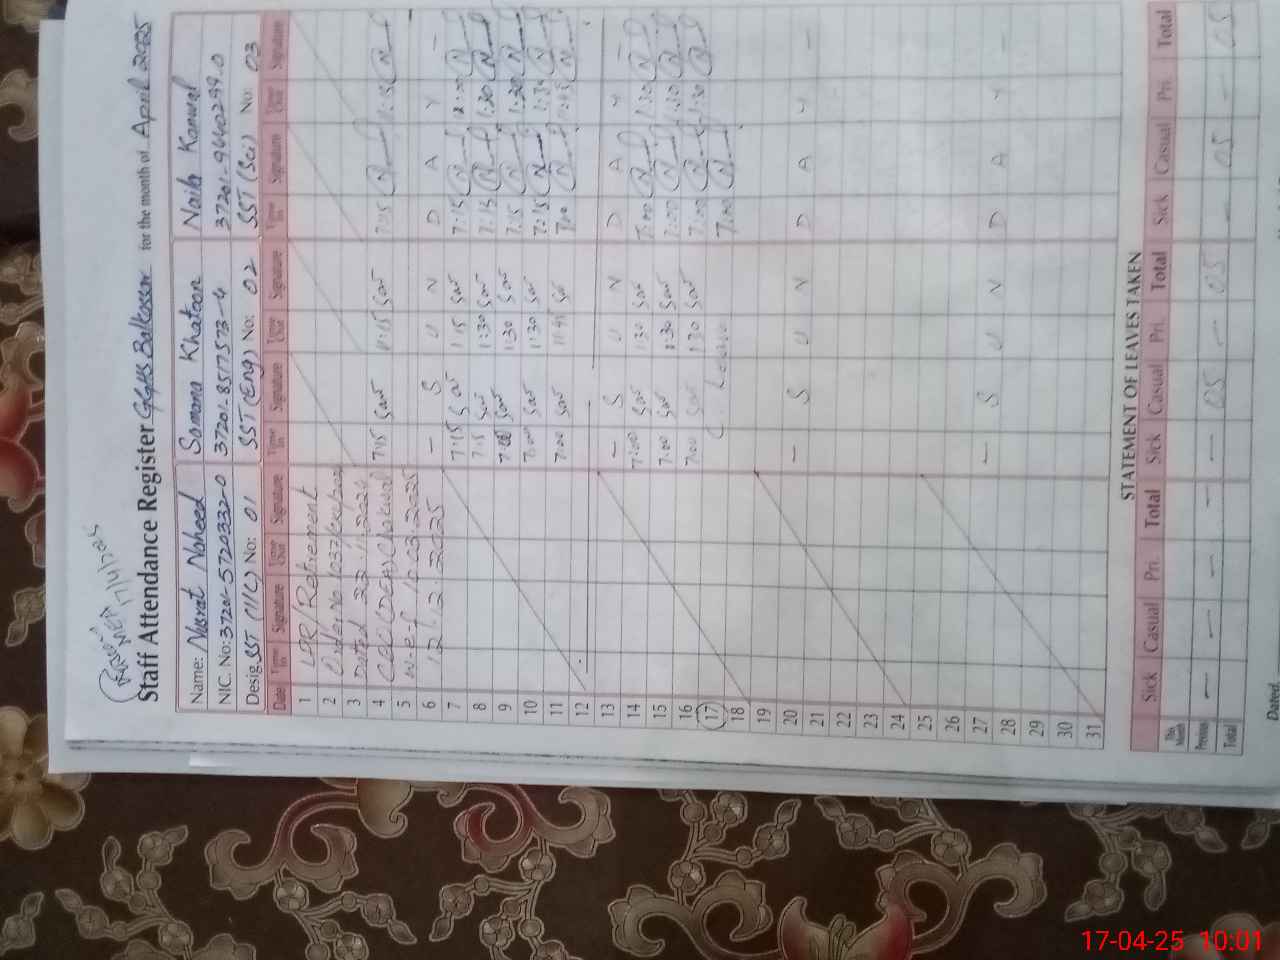 17/4/2025
Staff Attendance Register GGHS Balkassar for the month of April 2025
Name: Nusrat Naheed Samana Khatoon Naila Kanwal
NIC. No: 37201-5720332-0 37201-8517573-4 37201-9640299-0
Desig. SST (I/C) No: 01 SST (Eng) No: 02 SST (Sci) No: 03
Date Time In Signature Time Out Signature Time In Signature Time Out Signature Time In Signature Time Out Signature
1 LPR/Retirement
2 Order No
3 Dated 22.11.2024
4 CEO (DEA) Chakwal 7:15 11:15 7:15 11:15
5 w.e.f 10.03.2025
6 12.12.2025 — S U N D A Y —
7 7:15 1:15 7:15
8 7:15 1:30 7:15 1:30
9 7:00 1:30 7:15 1:30
10 7:00 1:30 7:15 1:30
11 7:00 7:00
12
13 — S U N D A Y —
14 7:00 1:30 7:00 1:30
15 7:00 1:30 7:00 1:30
16 7:00 1:30 7:00 1:30
17 C. Leave 7:00
18
19
20 — S U N D A Y —
21
22
23
24
25
26
27 — S U N D A Y —
28
29
30
31
STATEMENT OF LEAVES TAKEN
Sick Casual Pri. Total Sick Casual Pri. Total Sick Casual Pri. Total
This Month
Previous — — — — — 05 — 05 — 05 — 05
Total
Dated.
17-04-25 10:01